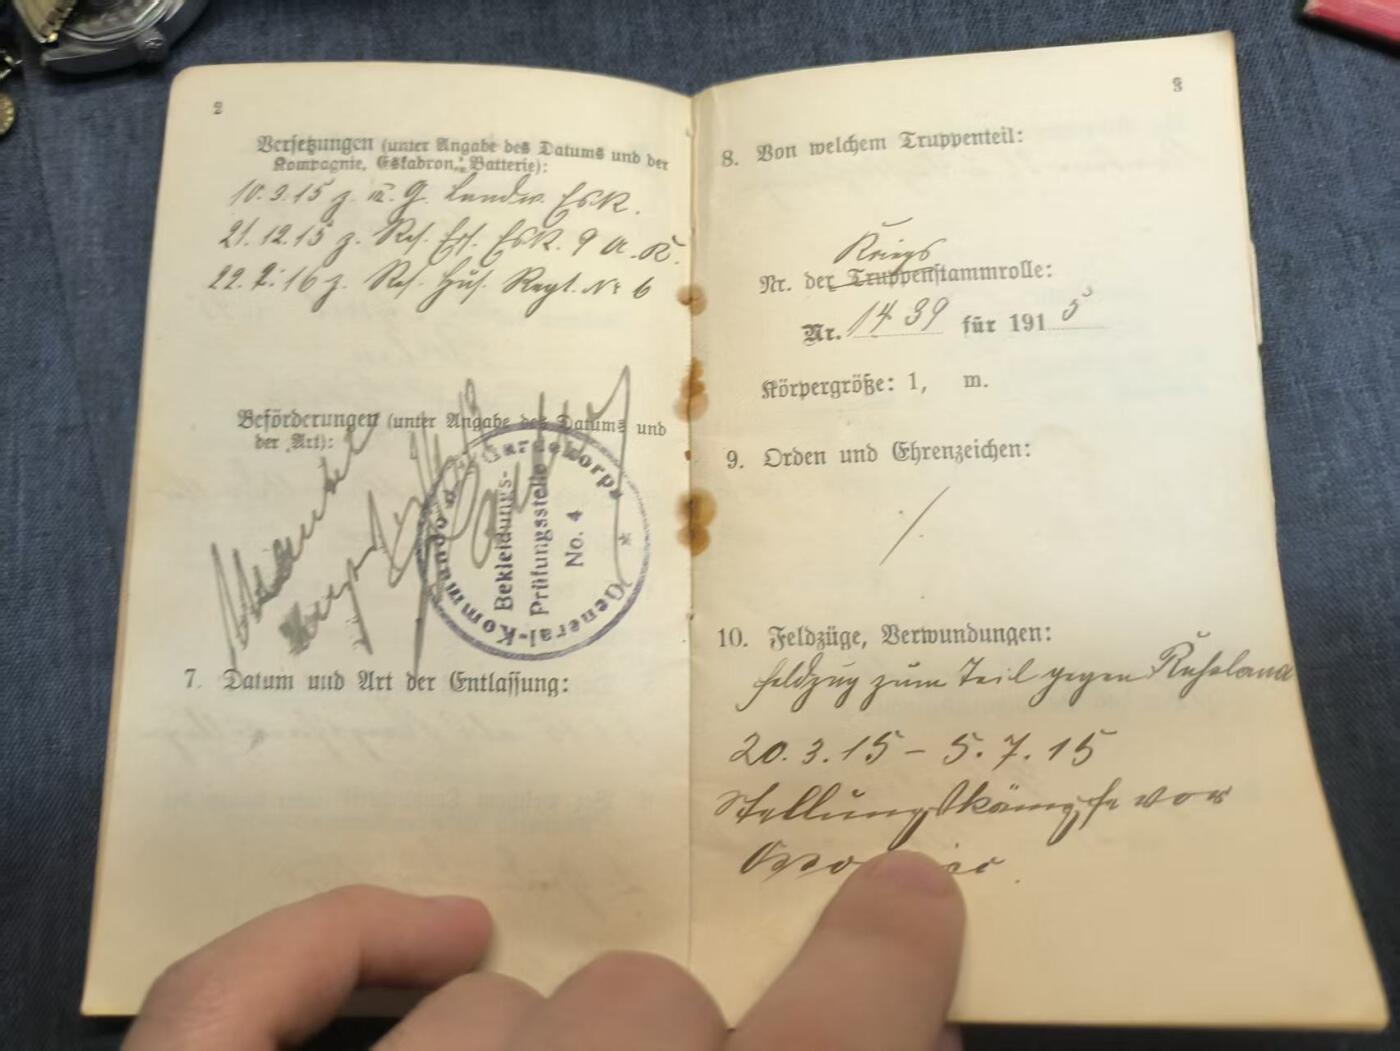 2
Versetzungen (unter Angabe des Datums und der
Kompagnie, Eskadron, Batterie):
10.3.15 z. G. Landw. Esk.
21.12.15 z. Res. Ers. Esk. 9 A. K.
22.2.16 z. Res. Hus. Regt. Nr 6
Beförderungen (unter Angabe des Datums und
der Art):
General-Kommando d. Gardekorps *
Bekleidungs-
Prüfungsstelle
No. 4
7. Datum und Art der Entlassung:
3
8. Von welchem Truppenteil:
Kriegs
Nr. der Truppenstammrolle:
Nr. 1439 für 1915
Körpergröße: 1, m.
9. Orden und Ehrenzeichen:
/
10. Feldzüge, Verwundungen:
Feldzug zum Teil gegen Rußland
20.3.15 - 5.7.15
Stellungskämpfe vor